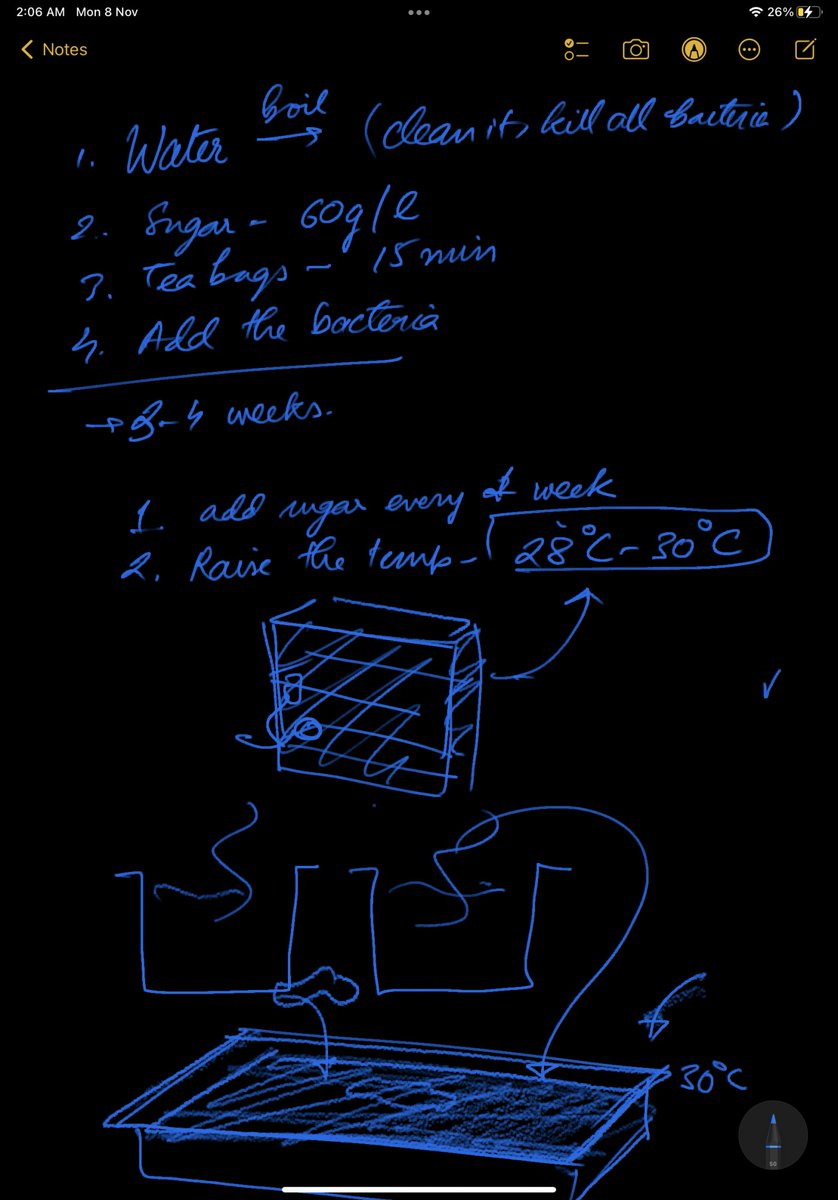 2:06 AM Mon 8 Nov
26%
Notes
1. Water boil → (clean it, kill all bacteria)
2. Sugar - 60g/l
3. Tea bags - 15 min
4. Add the bacteria
→ 3-4 weeks.
1. add sugar every week
2. Raise the temp - 28°C - 30°C
30°C
50